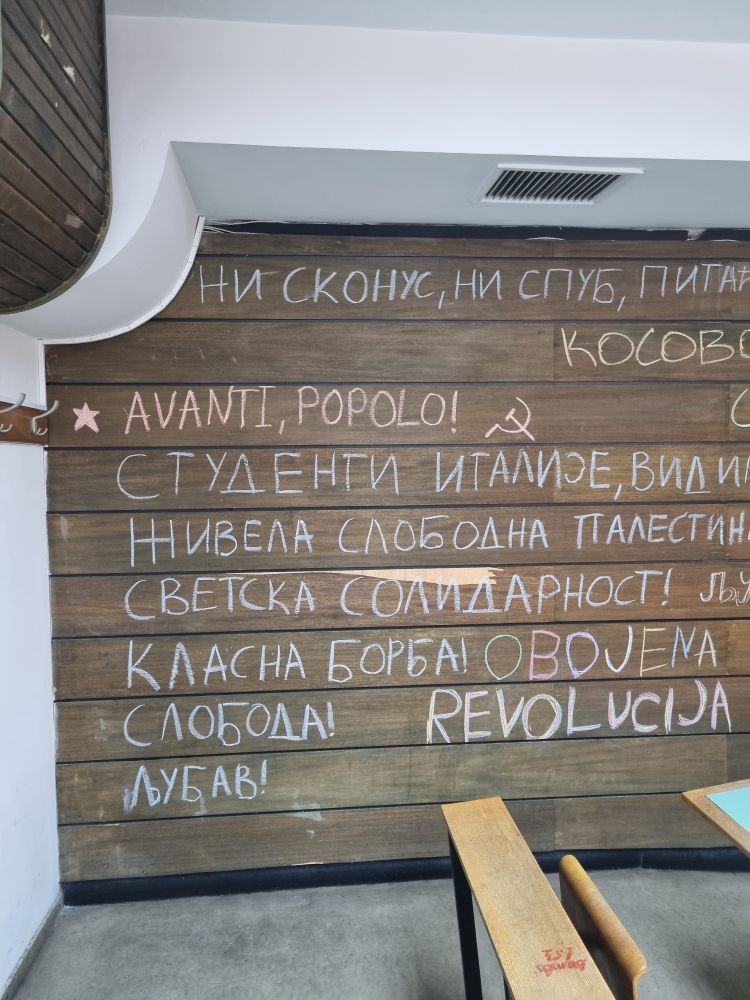 НИ СКОНУС, НИ СПУБ, ПИТА
КОСОВО
AVANTI, POPOLO!
СТУДЕНТИ ИТАЛИЈЕ, ВИДИ
ЖИВЕЛА СЛОБОДНА ПАЛЕСТИН
СВЕТСКА СОЛИДАРНОСТ! ЉУ
КЛАСНА БОРБА! OBOJENA
СЛОБОДА! REVOLUCIJA
ЉУБАВ!